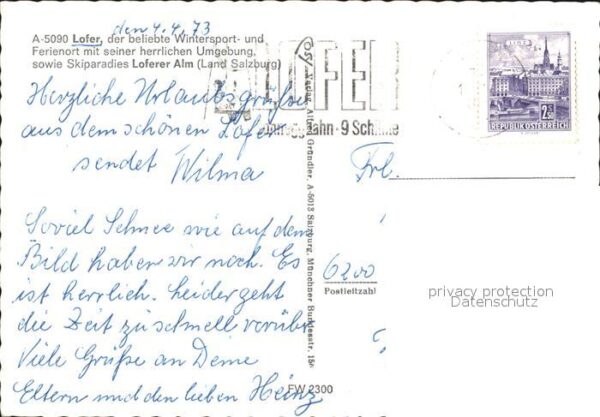 den 4.4.73
A-5090 Lofer, der beliebte Wintersport- und
Ferienort mit seiner herrlichen Umgebung,
sowie Skiparadies Loferer Alm (Land Salzburg)
Herzliche Urlaubsgrüße
aus dem schönen Lofer
sendet Wilma
Soviel Schnee wie auf dem
Bild haben wir noch. Es
ist herrlich. Leider geht
die Zeit zu schnell vorüber
Viele Grüße an Deine
Eltern und den lieben Heinz
Verlag Alfred Gründler, A-5013 Salzburg, Münchner Bundesstr. 156
FW 2300
LOFER
9 Schilifte
LINZ
2.50
REPUBLIK ÖSTERREICH
Frl.
6200
Postleitzahl
privacy protection
Datenschutz